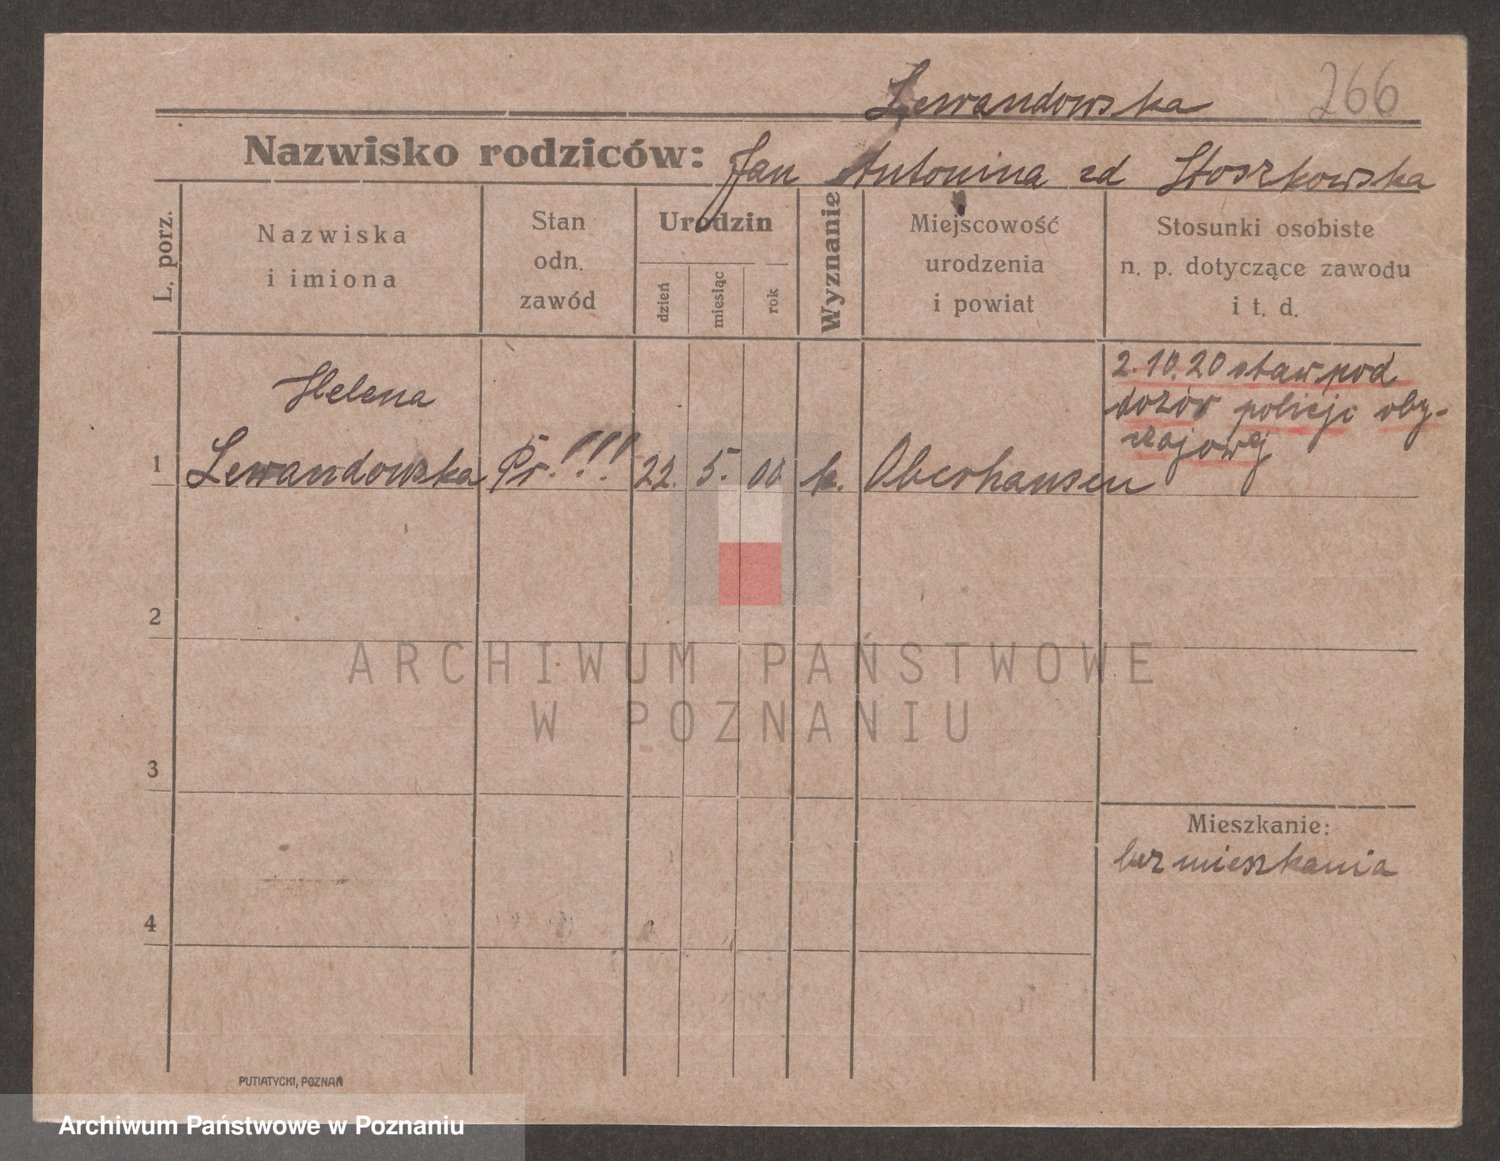 Lewandowska 266
Nazwisko rodziców: Jan Antonina zd Stoszkowska
L. porz.
Nazwiska
i imiona
Stan
odn.
zawód
Urodzin
dzień
miesiąc
rok
Wyznanie
Miejscowość
urodzenia
i powiat
Stosunki osobiste
n. p. dotyczące zawodu
i t. d.
1
Helena
Lewandowska
Pr.!!!
22.
5.
00
k.
Oberhausen
2.10.20 staw pod
dozór policji oby-
czajowej
2
3
4
Mieszkanie:
bez mieszkania
PUTIATYCKI, POZNAŃ
ARCHIWUM PAŃSTWOWE
W POZNANIU
Archiwum Państwowe w Poznaniu